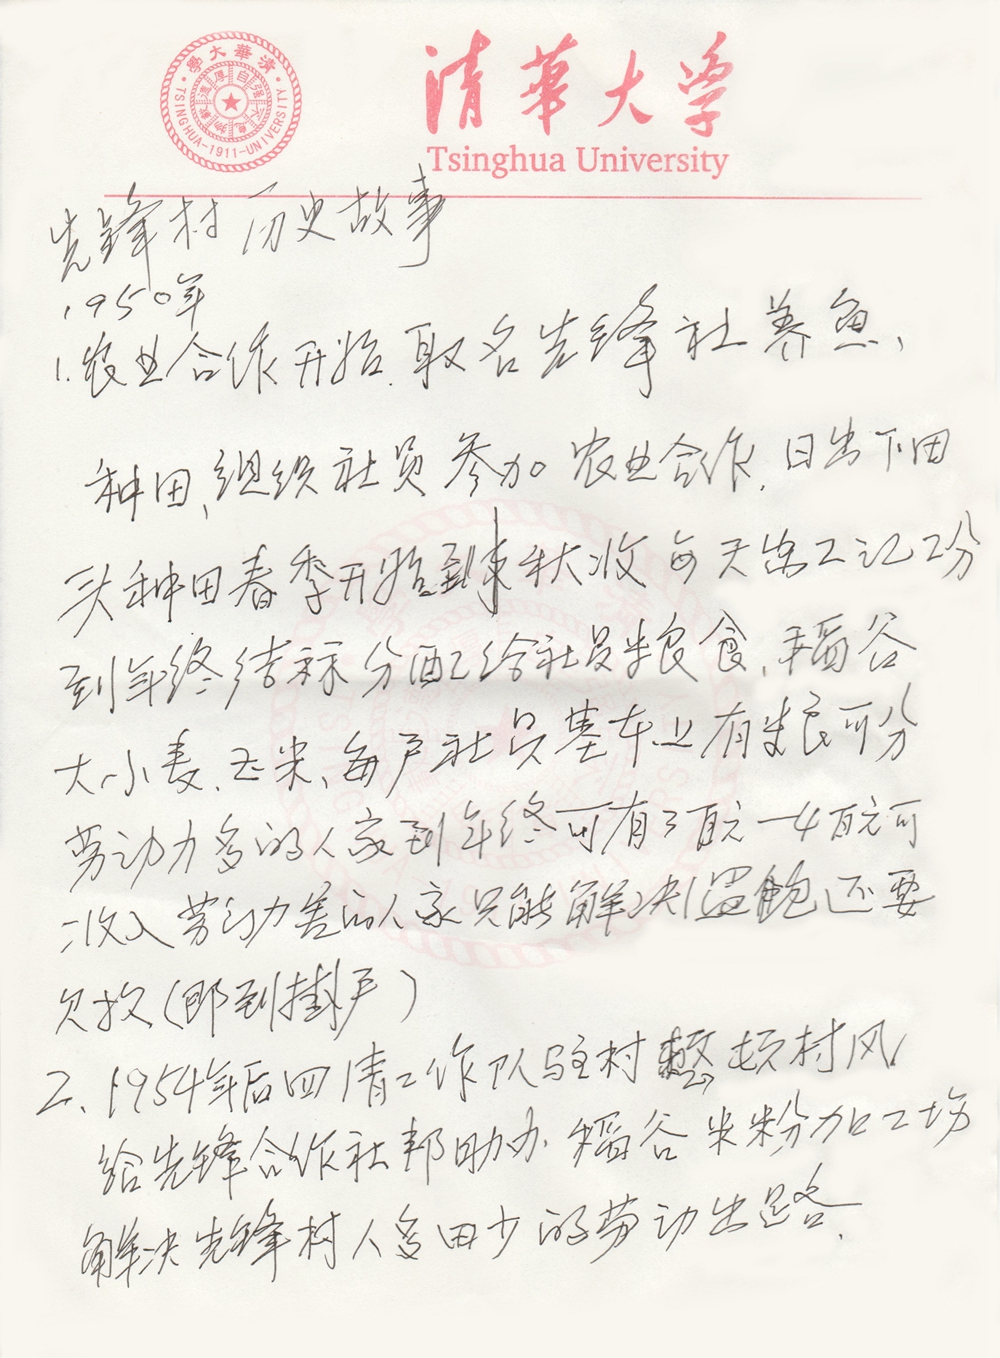 清華大学
Tsinghua University
清華大學
TSINGHUA-1911-UNIVERSITY
先锋村历史故事
1950年
1.农业合作开始.取名先锋社养鱼、
种田、组织社员参加农业合作.日出下田
头种田春季开始到秋收每天出工记工分
到年终结标分配给社员粮食、稻谷
大小麦、玉米、每户社员基本上有粮可分
劳动力多的人家到年终可有3百元—4百元可
收入劳动力差的人家只能解决温饱还要
欠款(即到挂户)
2、1954年后四清工作队驻村整顿村风
给先锋合作社邦助办稻谷米粉加工场
解决先锋村人多田少的劳动出路.